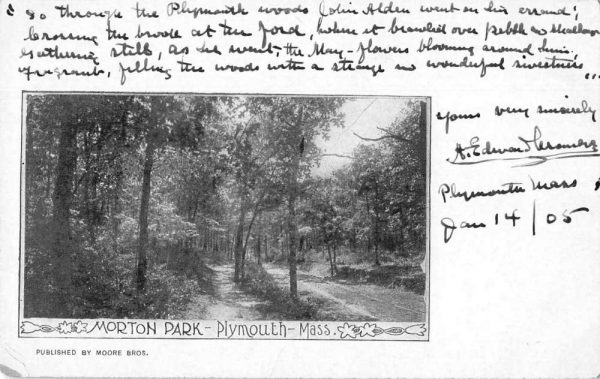 " So through the Plymouth woods John Alden went on his errand;
Crossing the brook at the ford, where it brawled over pebble and shallow
Gathering still, as he went, the May-flowers blooming around him.
Fragrant, filling the woods with a strange and wonderful sweetness ...
Yours very sincerely
A. Edward
Plymouth Mass
Jan 14/05
MORTON PARK - Plymouth - Mass.
PUBLISHED BY MOORE BROS.